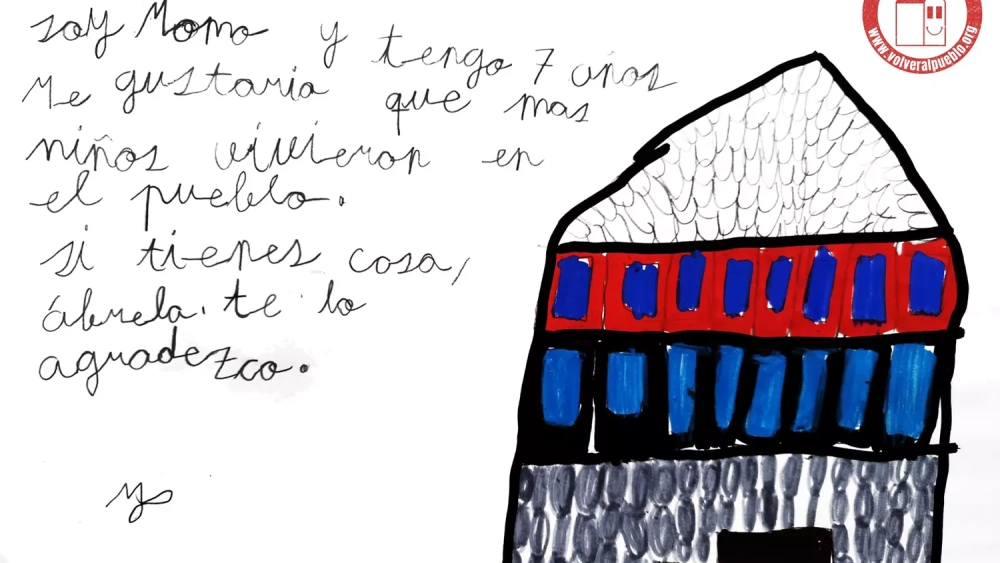 soy Momo y tengo 7 años
Me gustaria que mas
niños vivieron en
el pueblo.
si tienes cosa,
ábrela. te lo
agradezco.
www.volveralpueblo.org